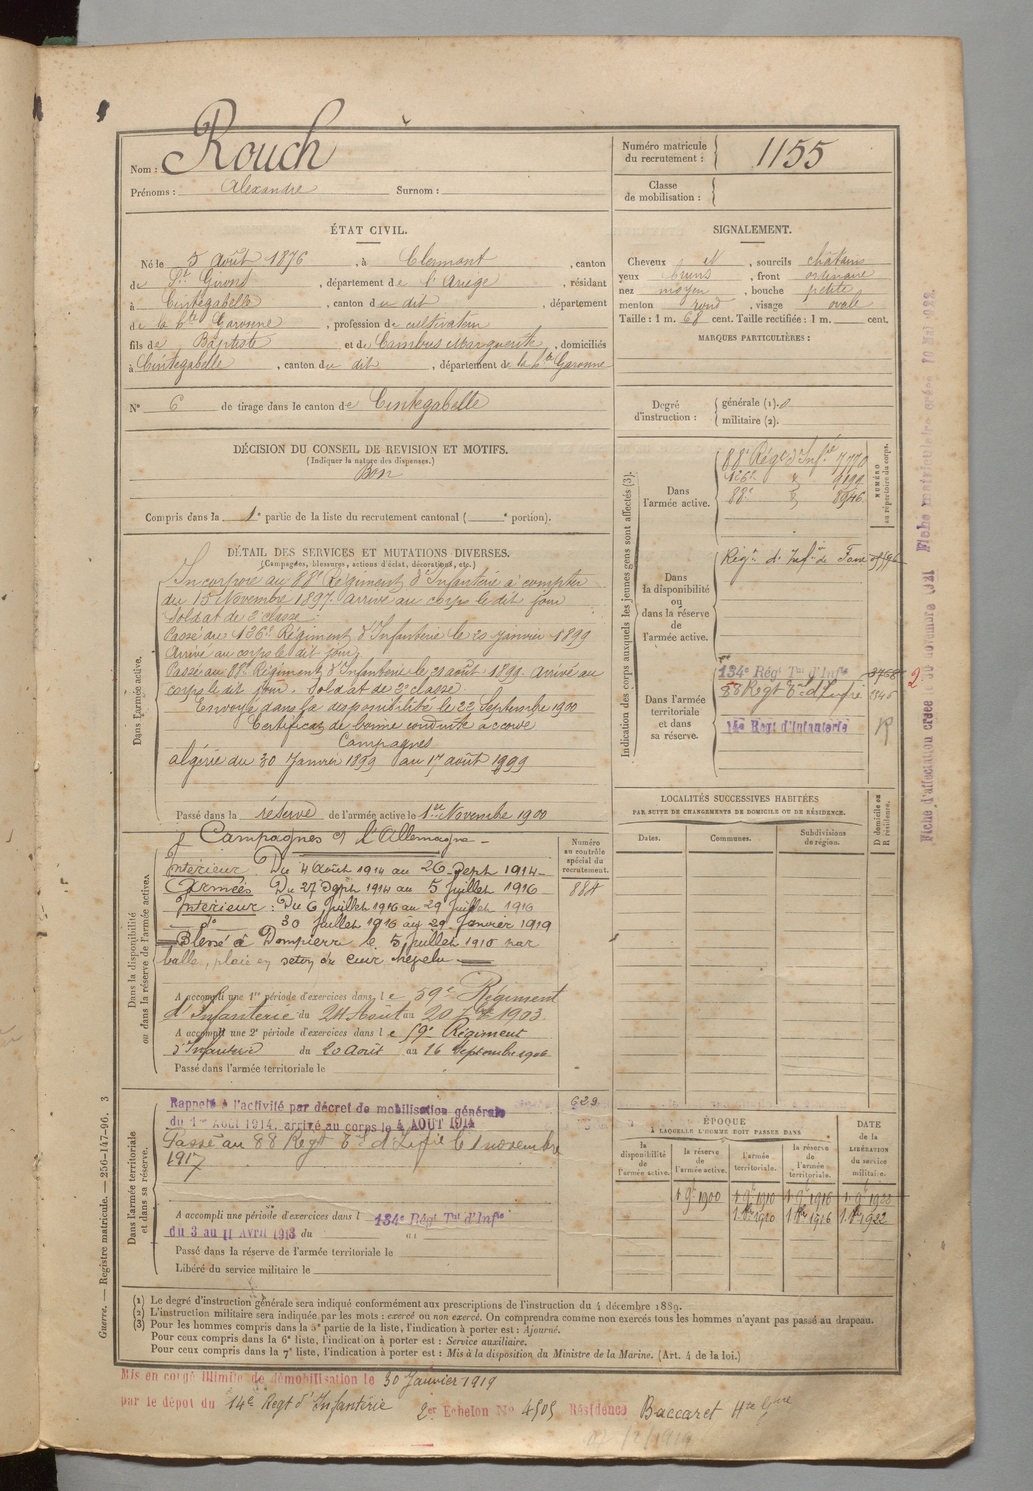 Nom : Rouch
Prénoms : Alexandre Surnom :
Numéro matricule du recrutement : 1155
Classe de mobilisation :
ÉTAT CIVIL.
Né le 5 Août 1876, à Clermont, canton
de St Girons, département de l'Ariège, résidant
à Cintegabelle, canton du dit, département
de la hte Garonne, profession de cultivateur
fils de Baptiste et de Cambus Marguerite, domiciliés
à Cintegabelle, canton du dit, département de la hte Garonne
N° 6 de tirage dans le canton de Cintegabelle
SIGNALEMENT.
Cheveux N, sourcils châtains
yeux bruns, front ordinaire
nez moyen, bouche petite
menton rond, visage ovale
Taille : 1 m. 68 cent. Taille rectifiée : 1 m. cent.
MARQUES PARTICULIÈRES :
Degré d'instruction : générale (1). 0
militaire (2).
DÉCISION DU CONSEIL DE REVISION ET MOTIFS.
(Indiquer la nature des dispenses.)
Bon
Compris dans la 1e partie de la liste du recrutement cantonal ( e portion).
DÉTAIL DES SERVICES ET MUTATIONS DIVERSES.
(Campagnes, blessures, actions d'éclat, décorations, etc.)
Dans l'armée active.
Incorporé au 88e Régiment d'Infanterie à compter
du 15 Novembre 1897. Arrivé au corps le dit jour
Soldat de 2e classe
Passé au 126e Régiment d'Infanterie le 20 janvier 1899
Arrivé au corps le dit jour
Passé au 88e Régiment d'Infanterie le 21 août 1899. Arrivé au
corps le dit jour. Soldat de 2e classe
Envoyé dans la disponibilité le 22 Septembre 1900
Certificat de bonne conduite accordé
Campagnes
Algérie du 30 Janvier 1899 au 17 août 1899
Passé dans la réserve de l'armée active le 1er Novembre 1900
Dans la disponibilité ou dans la réserve de l'armée active.
Campagnes c/ l'Allemagne
Intérieur Du 4 Août 1914 au 26 Sept 1914
Armées Du 27 Sept 1914 au 5 juillet 1916
Intérieur : Du 6 juillet 1916 au 29 juillet 1916
do 30 juillet 1916 au 29 Janvier 1919
Blessé à Dompierre le 5 juillet 1916 par
balle, plaie en séton du cuir chevelu
A accompli une 1re période d'exercices dans le 59e Régiment
d'Infanterie du 24 Août au 20 7bre 1903.
A accompli une 2e période d'exercices dans le 59e Régiment
d'Infanterie du 20 Août au 16 Septembre 1906
Passé dans l'armée territoriale le
Numéro au contrôle spécial du recrutement.
884
629
Dans l'armée territoriale et dans sa réserve.
Rappelé à l'activité par décret de mobilisation générale
du 1er Août 1914. arrivé au corps le 4 AOUT 1914
Passé au 88 Regt Tal d'Infie le 1 novembre
1917
A accompli une période d'exercices dans l 134e Régt Tal d'Infie
du 3 au 11 Avril 1913 du au
Passé dans la réserve de l'armée territoriale le
Libéré du service militaire le
Indication des corps auxquels les jeunes gens sont affectés (3).
NUMÉRO au répertoire du corps.
Dans l'armée active.
88e Régt d'Infrie 7770
126e d 9199
88e d 8946
Dans la disponibilité ou dans la réserve de l'armée active.
Régt d'Infie de Foix
Dans l'armée territoriale et dans sa réserve.
134e Régt Tal d'Infie
88 Regt Tal d'Infie 1346
14e Regt d'Infanterie
2
LOCALITÉS SUCCESSIVES HABITÉES
PAR SUITE DE CHANGEMENTS DE DOMICILE OU DE RÉSIDENCE.
Dates. Communes. Subdivisions de région. D domicile ou R résidence.
ÉPOQUE
À LAQUELLE L'HOMME DOIT PASSER DANS
la disponibilité de l'armée active.
la réserve de l'armée active.
l'armée territoriale.
la réserve de l'armée territoriale.
DATE de la LIBÉRATION du service militaire.
1. 9e 1900 1. 9e 1910 1. 9e 1916 1. 9e 1922
1. 8re 1910 1. 8re 1916 1. 8re 1922
(1) Le degré d'instruction générale sera indiqué conformément aux prescriptions de l'instruction du 4 décembre 1889.
(2) L'instruction militaire sera indiquée par les mots : exercé ou non exercé. On comprendra comme non exercés tous les hommes n'ayant pas passé au drapeau.
(3) Pour les hommes compris dans la 5e partie de la liste, l'indication à porter est : Ajourné.
Pour ceux compris dans la 6e liste, l'indication à porter est : Service auxiliaire.
Pour ceux compris dans la 7e liste, l'indication à porter est : Mis à la disposition du Ministre de la Marine. (Art. 4 de la loi.)
Guerre. — Registre matricule. — 256-147-96. 3
Mis en congé illimité de démobilisation le 30 Janvier 1919
par le dépôt du 14e Regt d'Infanterie 2er Echelon No 4505 Résidence Baccaret Hte Gnne
Fiche d'affectation créée le 30 novembre 1921 Fiche matriculaire créée 10 Mai 1922.